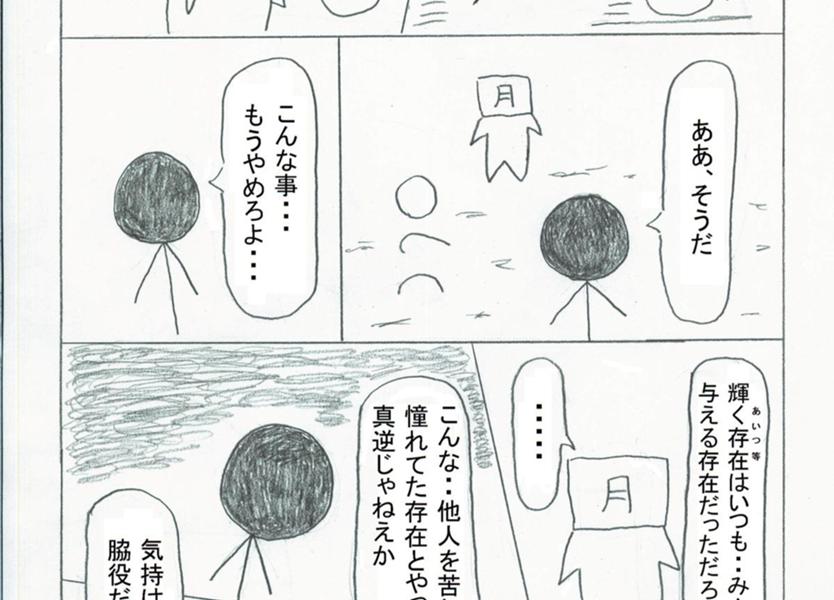 ああ、そうだ
月
こんな事・・・
もうやめろよ・・・
あいつ等
輝く存在はいつも・・み
与える存在だっただろ
・・・・・
月
こんな・・他人を苦
憧れてた存在とや
真逆じゃねえか
気持
脇役だ